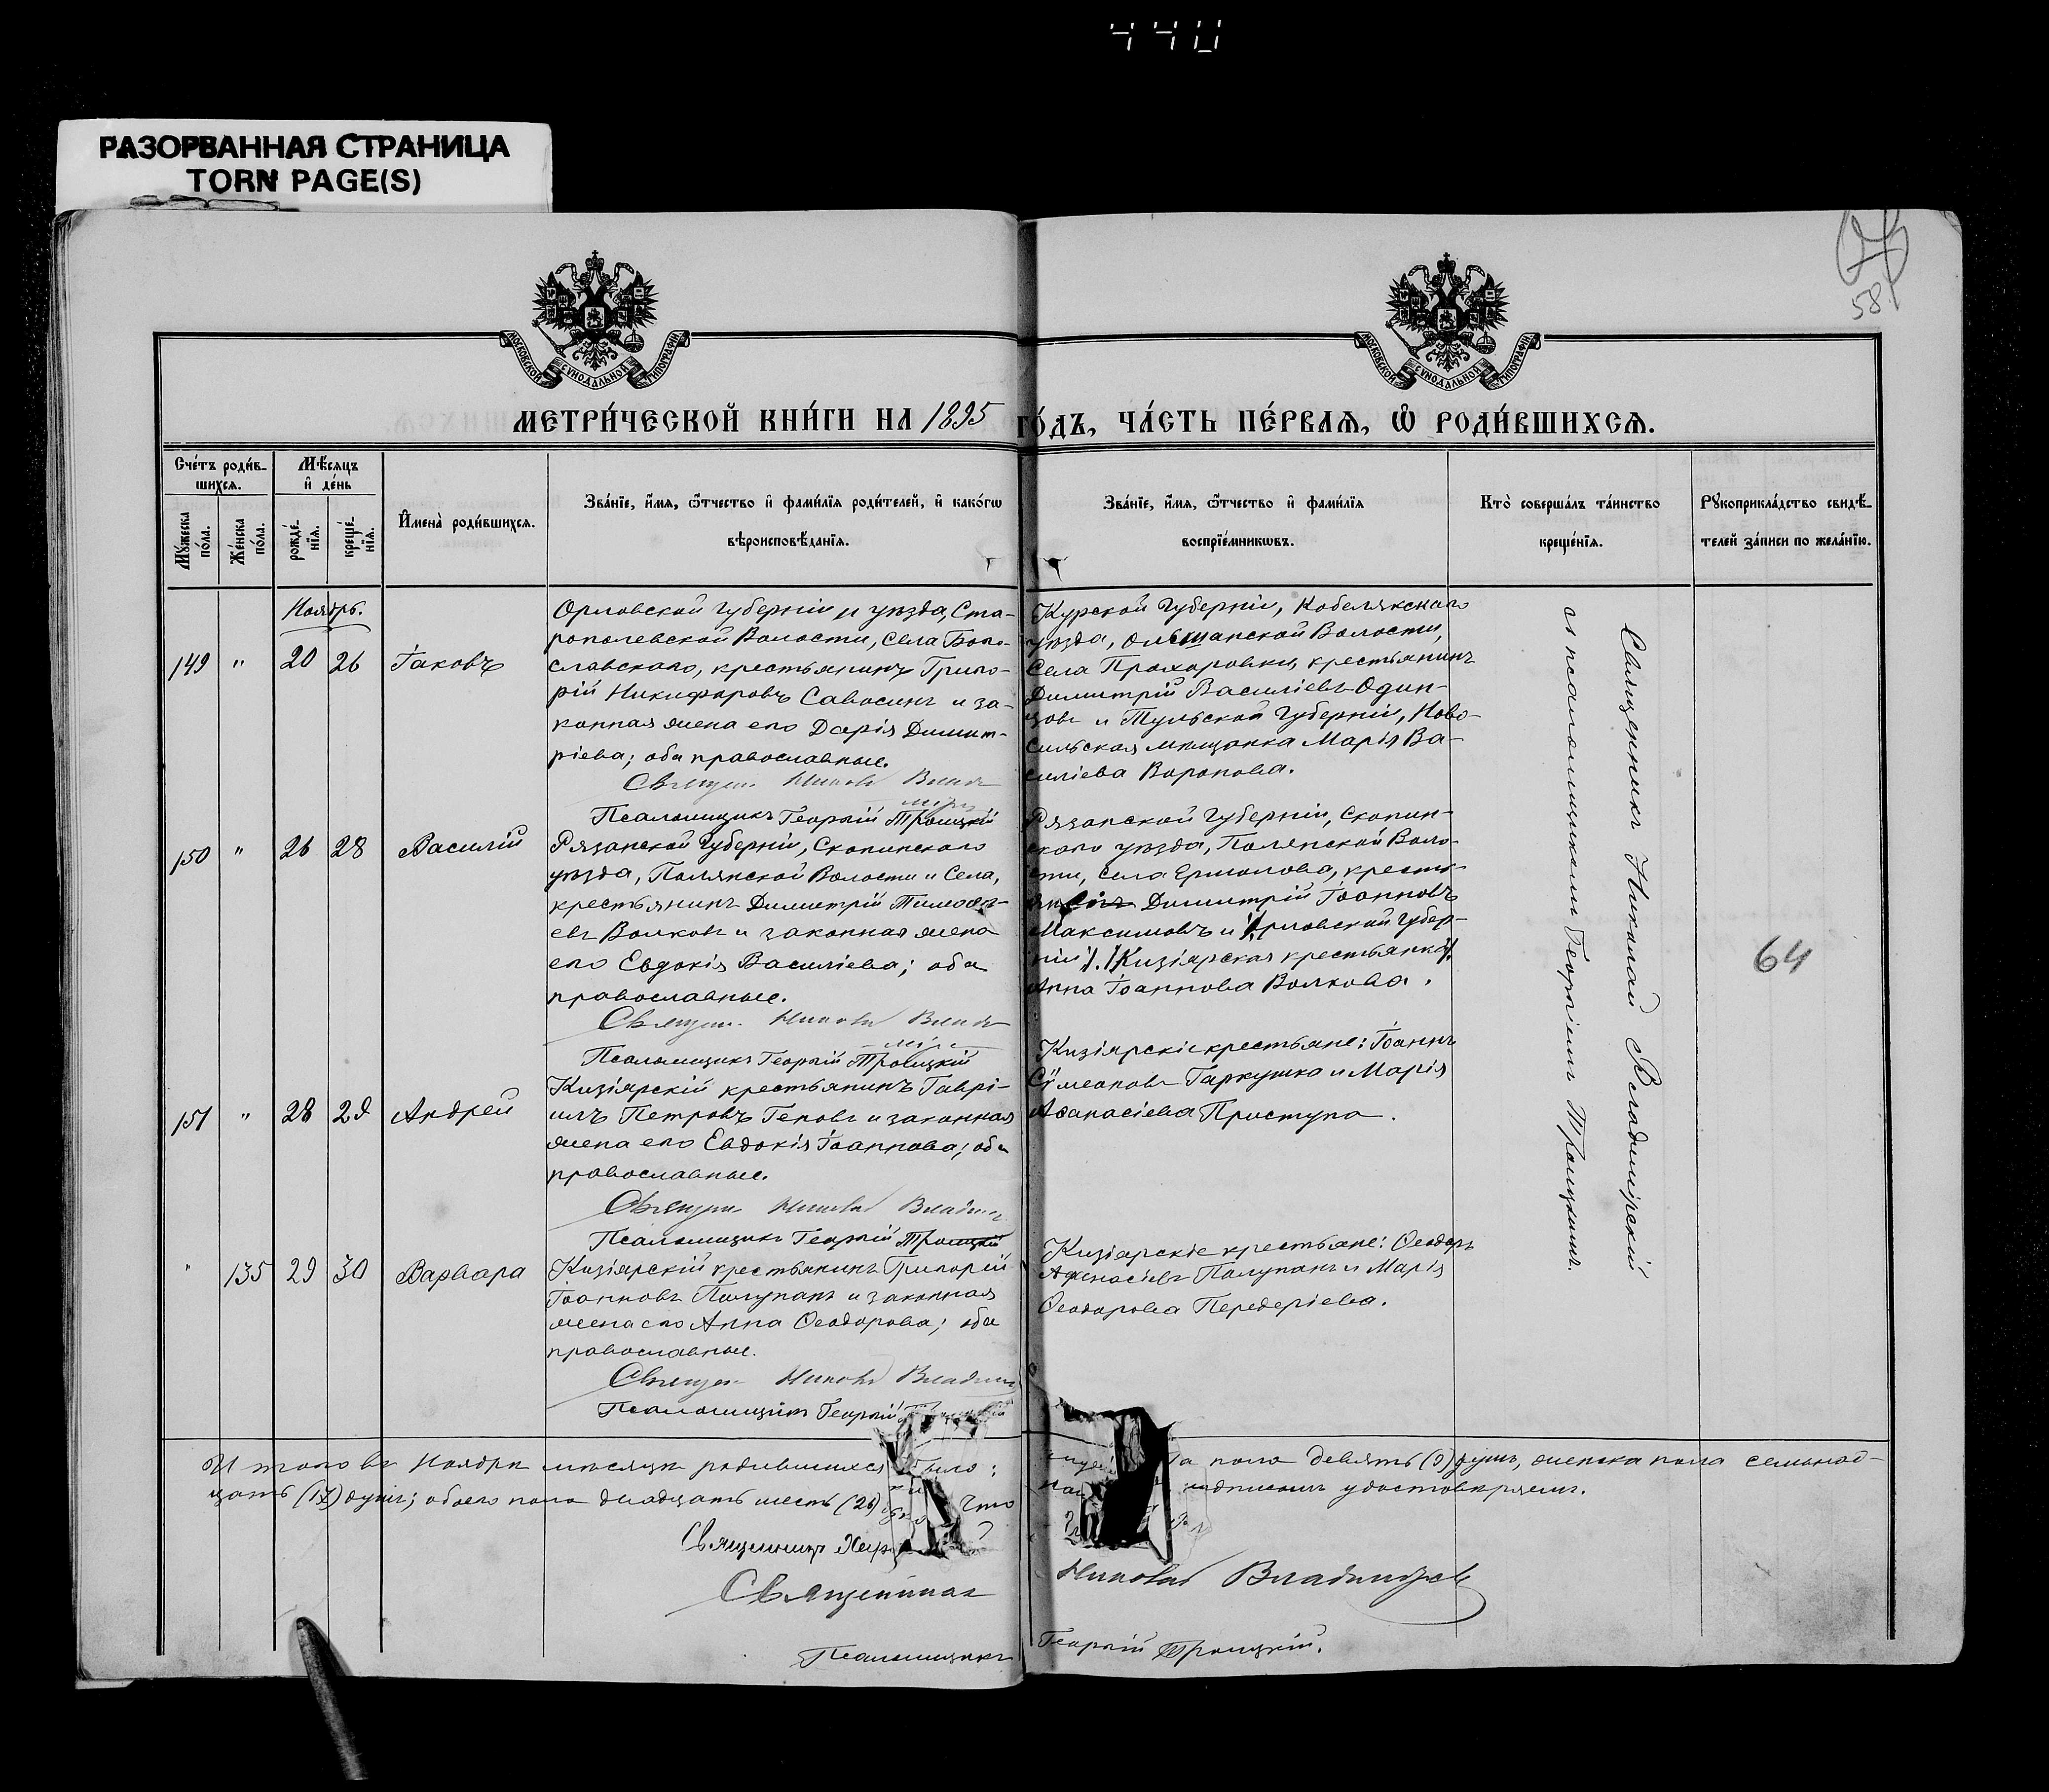 440
РАЗОРВАННАЯ СТРАНИЦА
TORN PAGE(S)
58
МОСКОВСКОЙ СУНОДАЛЬНОЙ ТИПОГРАФІИ
МОСКОВСКОЙ СУНОДАЛЬНОЙ ТИПОГРАФІИ
МЕТРИ́ЧЕСКОЙ КНИ́ГИ НА 1895 ГО́ДЪ, ЧА́СТЬ ПЕ́РВАѦ, Ѡ҆ РОДИ́ВШИХСѦ.
Сче́тъ роди́в-
шихсѧ.
Мꙋжеска по́ла.
Же́нска по́ла.
Мѣ́сѧцъ
и҆ де́нь
рожде́-
нїѧ.
креще́-
нїѧ.
И҆мена̀ роди́вшихсѧ.
Зва́нїе, и҆́мѧ, ѻ҆́тчество и҆ фами́лїѧ роди́телей, и҆ како́гѡ
вѣроисповѣ́данїѧ.
Зва́нїе, и҆́мѧ, ѻ҆́тчество и҆ фами́лїѧ
воспрїе́мникѡвъ.
Кто̀ соверша́лъ та́инство
креще́нїѧ.
Рꙋкоприкла́дство свидѣ́-
телей за́писи по жела́нїю.
Ноябрь.
149 " 20 26 Іаковъ
Орловской губерніи и уѣзда, Ста-
рополевской Волости, Села Бого-
славскаго, крестьянинъ Григо-
рій Никифоровъ Савосинъ и за-
конная жена его Дарія Димит-
ріева; оба православные.
Священ. Николай Влади
мір
Псаломщикъ Георгій Троицкій
Курской Губерніи, Кобелякскаго
уѣзда, Ольшанской Волости,
Села Прохоровки, крестьянинъ
Димитрій Василіевъ Один-
цовъ и Тульской Губерніи, Ново-
сильская мѣщанка Марія Ва-
силіева Воронова.
150 " 26 28 Василій
Рязанской Губерніи, Скопинскаго
уѣзда, Полянской Волости и Села,
крестьянинъ Димитрій Тимоѳе-
евъ Волковъ и законная жена
его Евдокія Василіева; оба
православные.
Священ. Николай Влади
мір
Псаломщикъ Георгій Троицкій
Рязанской Губерніи, Скопин-
скаго уѣзда, Полянской Воло-
сти, Села Ермолова, кресть-
янинъ Димитрій Іоанновъ
Максимовъ и Орловской Губер-
ніи Кизіярская крестьянка
Анна Іоаннова Волкова.
151 " 28 29 Андрей
Кизіярскій крестьянинъ Гаврі-
илъ Петровъ Геновъ и законная
жена его Евдокія Іоаннова; оба
православные.
Священ. Николай Владим
Псаломщикъ Георгій Троицкій
Кизіярскіе крестьяне: Іоаннъ
Сѵмеоновъ Гаркушка и Марія
Аѳанасіева Приступа.
" 135 29 30 Варвара
Кизіярскій крестьянинъ Григорій
Іоанновъ Полупанъ и законная
жена его Анна Ѳеодорова; оба
православные.
Священ. Николай Владим
Псаломщикъ Георгій
Кизіярскіе крестьяне: Ѳеодоръ
Аѳанасіевъ Полупанъ и Марія
Ѳеодорова Передеріева.
Священникъ Николай Владимірскій
съ псаломщикомъ Георгіемъ Троицкимъ.
64
Итого въ Ноябрѣ мѣсяцѣ родившихся было: пола девять (9) душъ, женска пола семнад-
цать (17) душъ; обоего пола двадцать шесть (26) что подписомъ удостовѣряемъ.
Священникъ
Священникъ Николай Владимірскій
Псаломщикъ Георгій Троицкій.